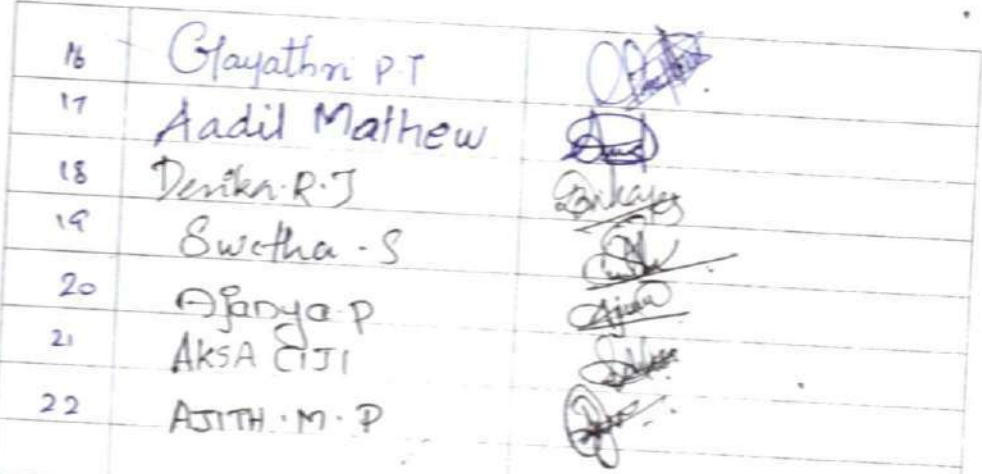 16 Gayathri P.T
17 Aadil Mathew
18 Devika.R.J
19 Swetha.S
20 Ajanya P
21 AKSA CIJI
22 AJITH.M.P